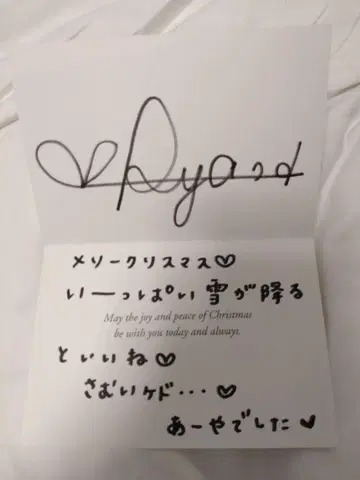 メリークリスマス♡
いーっぱい雪が降る
May the joy and peace of Christmas
be with you today and always.
といいね♡
さむいケド...♡
あーやでした♥